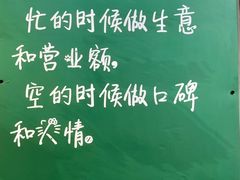 忙的时候做生意
和营业额,
空的时候做口碑
和情。